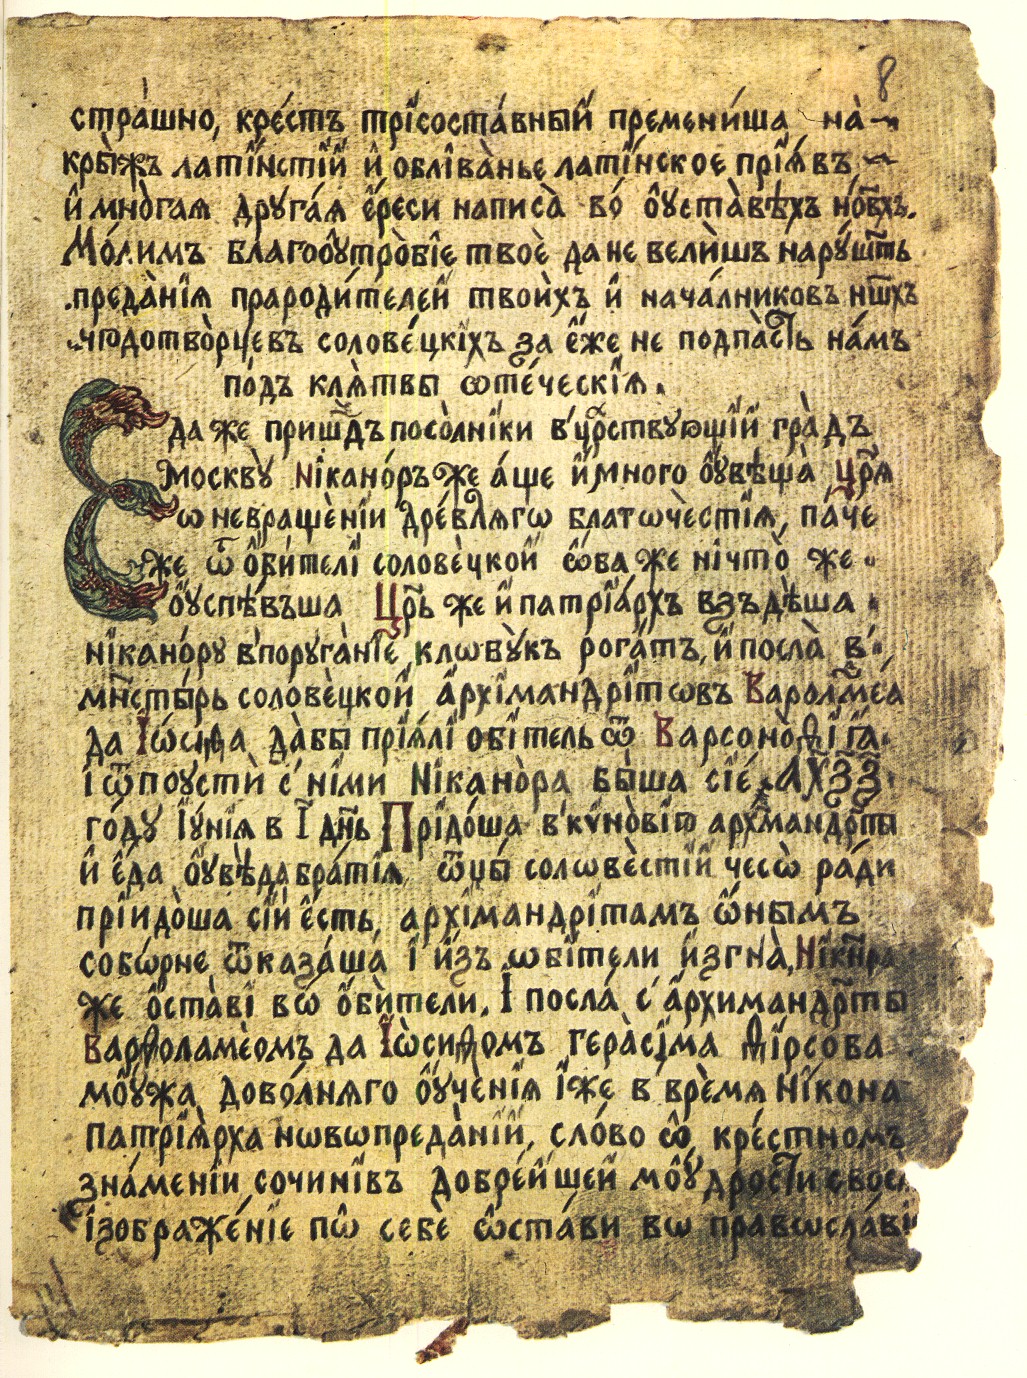 8
стра́шно, кре́стъ трїсоста́вный премени́ша на̀
кры́жъ латї́нстїй и҆ ѻблїва̀нье латї́нское прїѧ́въ
и҆ мно̀гаѧ друга́ѧ є҆́реси написа̀ во́ ѹ҆ста̀вѣхъ но́выхъ.
Мо́лимъ благоѹ҆тро̀бїе твоѐ да не вели̍шъ нарꙋ́шить
преда̀нїѧ прароди́телей твои̍хъ и҆ нача́лниковъ нш҃хъ
чюдотво̀рцевъ солове́цкїхъ за є҆́же не подпа́сть на́мъ
по́дъ клѧ̀твы ѡте́ческїѧ.
Єда же пришⷣъ посо̀лнїки в' црⷭтвующїй гра̀дъ
Москвꙋ̀ Нїкано́ръ же а́ще и҆ много ѹ҆вѣща̀ Цр҃ѧ
ѡ невращѐнїи дре́влѧгѡ благѡчѐстїѧ, па́че
же ѿ ѻ҆би́телї солове̍цкой ѡ҆ба же нїчто̀ же
ѹ҆спѣ́въша Цр҃ь же и҆ патрїа́рхъ взъдѣ̀ша
нїкано́рꙋ в'порꙋга́нїе, клѡбꙋ̀къ рога́тъ, и҆ посла̀ в'
мнⷭты́рь солове̍цкой а҆рхїмандрїтѡвъ Варѳлⷨеа
да Іѡ́сиѳа да̀бы прїѧ́лї ѻбїтель ѿ Варсоно̀ѳїѧ.
ї ѿпоусти̍ с' ни́ми Нїкано̀ра бы́ша сїѐ ҂АХЗЗ
го́дꙋ Їꙋ́нїѧ в І҃ дн҃ь Прїдо́ша в' кѵно̀вїю архⷨмандрⷮты
и҆ є҆́да ѹ҆вѣ́да бра́тїѧ, ѿцы́ солѡве̍стїй чесѡ̀ ра́ди
прїидо̀ша сїй є҆́сть, архїмандрї́тамъ ѡ҆́нымъ
собѡ́рне ѿказа́ша ї и҆́зъ ѡбїтели и҆згна̀, Нїкн҃ра
же ѻ҆ста̀вї вѡ ѻ҆би̍тели, І посла́ с' а҆рхимандрⷮты
Варѳоламѐомъ да Іѡ̀сиѳомъ гера̀сїма Ѳїрсова
мѹ́жа дово́лнѧго ѹ҆чѐнїѧ ї҆же в врѐмѧ Нїкона
Патрїѧ̀рха нѡвѡпреда̀нїй, сло́во ѡ҆ кре́стномъ
зна́менїи сочинї́въ добре́йшей мѹ́дрости своеѧ
їзображе́нїе пѡ себѐ ѡ҆ста́ви вѡ правѡсла́вї